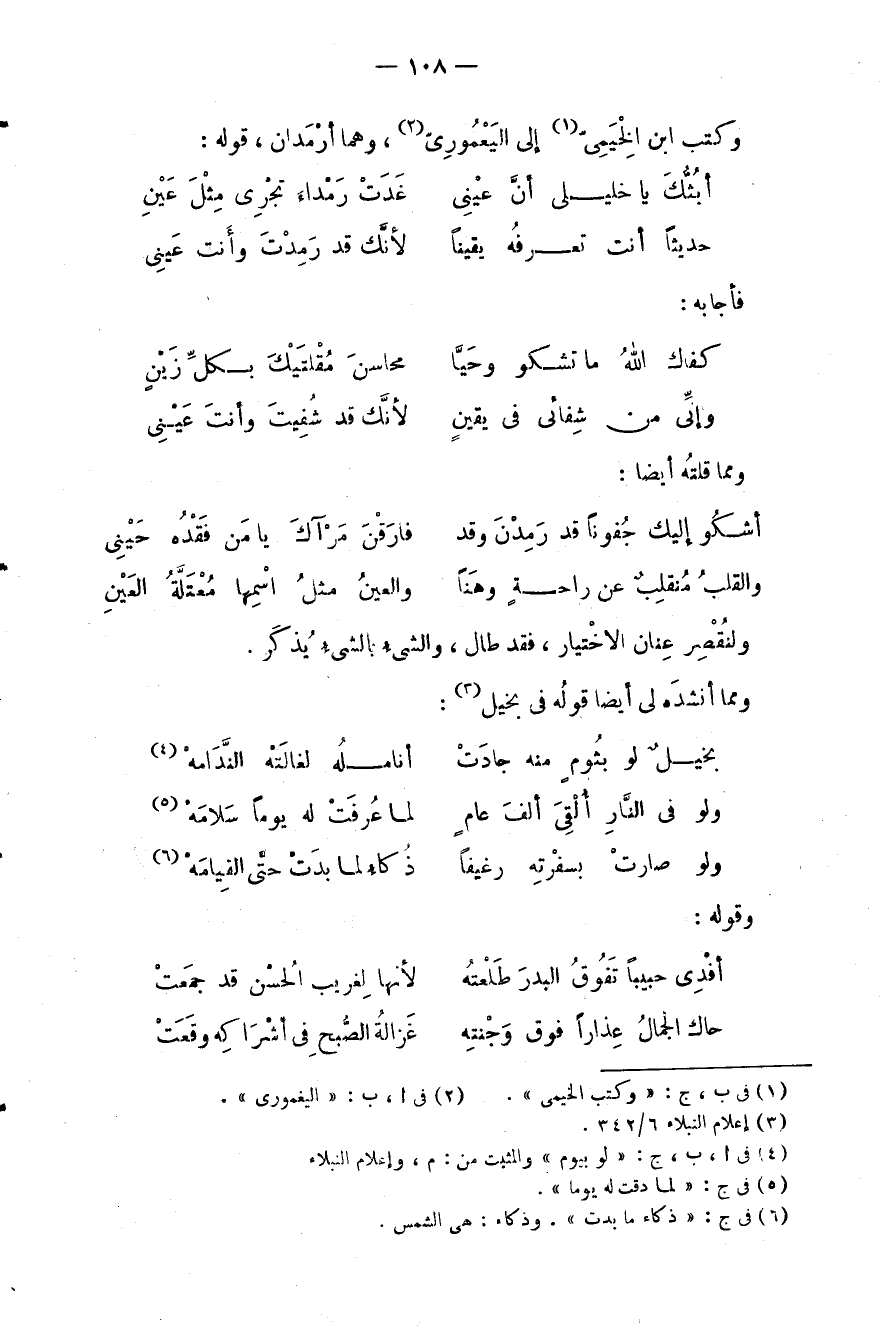 — ١٠٨ —
وكتب ابن الِخْيَمِىّ(١) إلى اليَعْمُورِىّ(٢) ، وهما أرْمَدان ، قوله :
أبُثُّكَ يا خليلى أنَّ عيْنِى غَدَتْ رَمْداءَ تجْرِى مِثْلَ عَيْنِ
حديثاً أنت تعرفُه يقيناً لأنَّك قد رَمِدْتَ وأَنت عَينِى
فأجابه :
كفاك اللهُ ماتشكو وحَيَّا محاسنَ مُقْلتَيْكَ بكلِّ زَيْنٍ
وإنِّى من شِفائى فى يقينٍ لأنَّك قد شُفِيتَ وأنتَ عَيْنِى
ومما قلتُه أيضا :
أشكُو إليك جُفوناً قد رَمِدْنَ وقد فارَقْنَ مَرْآكَ يا مَن فَقْدُه حَيْنِى
والقلبُ مُنقلِبٌ عن راحةٍ وهَنَاً والعينُ مثلُ اسْمِها مُعْتَلَّةُ العَيْنِ
ولنُقْصِر عِنان الاخْتيار ، فقد طال ، والشىء بالشىء يُذكَر .
ومما أنشدَه لى أيضا قولُه فى بخيل(٣) :
بخيلٌ لو بثُومٍ منه جادَتْ أناملُه لغالَتْه النَّدَامهْ(٤)
ولو فى النَّارِ أُلْقِىَ ألفَ عامٍ لما عُرفَتْ له يوماً سَلامَهْ(٥)
ولو صارتْ بسفْرتِه رغيفاً ذُكاء لما بدَتْ حتَّى القِيامَهْ(٦)
وقوله :
أفْدِى حبيباً تَفُوقُ البدرَ طَلْعتُه لأنها لِغريب الُحسْن قد جمعَتْ
حاك الجمالُ عِذاراً فوق وَجْنتِه غَزالةُ الصُّبح فى أشْرَاكِه وقَعَتْ
(١) فى ب ، ج : « وكتب الخيمى » . (٢) فى ا ، ب : « اليغمورى » .
(٣) إعلام النبلاء ٣٤٢/٦ .
(٤) فى ا ، ب ، ج : « لو بيوم » والمثبت من : م ، وإعلام النبلاء
(٥) فى ج : « لما دقت له يوما » .
(٦) فى ج : « ذكاء ما بدت » . وذكاء : هى الشمس .